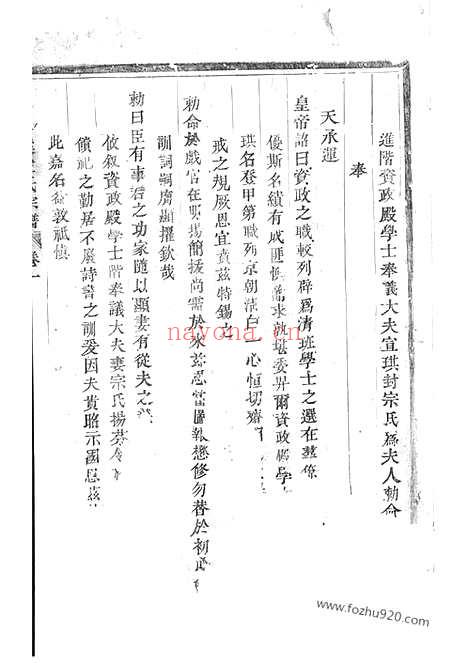 進階資政殿學士奉義大夫宣琪封宗氏為夫人勅命
奉
天承運
皇帝詔曰資政之職較列辟為清班學士之選在臺僚
優斯名績有成匪惬旁求孰堪委畀爾資政殿學
琪名登甲第職列京朝清白一心恒切齋
戒之規厥恩宜賁茲特錫之
勅命於戲官在明揚簡拔尚需於來茲恩當圖報懋修勿替於初
訓詞嗣膺顯擢欽哉
勅曰臣有事君之功家隨以顯妻有從夫之
依叙資政殿學士階奉議大夫妻宗氏揚芬
饋祀之勤居不廢詩書之訓爰因夫貴昭示國恩茲
此嘉名益敦祗慎
氏宗譜 卷一
nayona.cn
www.fozhu920.com